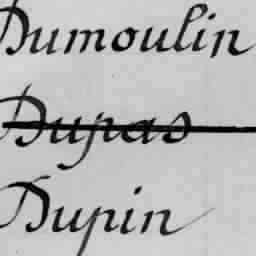 Dumoulin
Dupas
Dupin